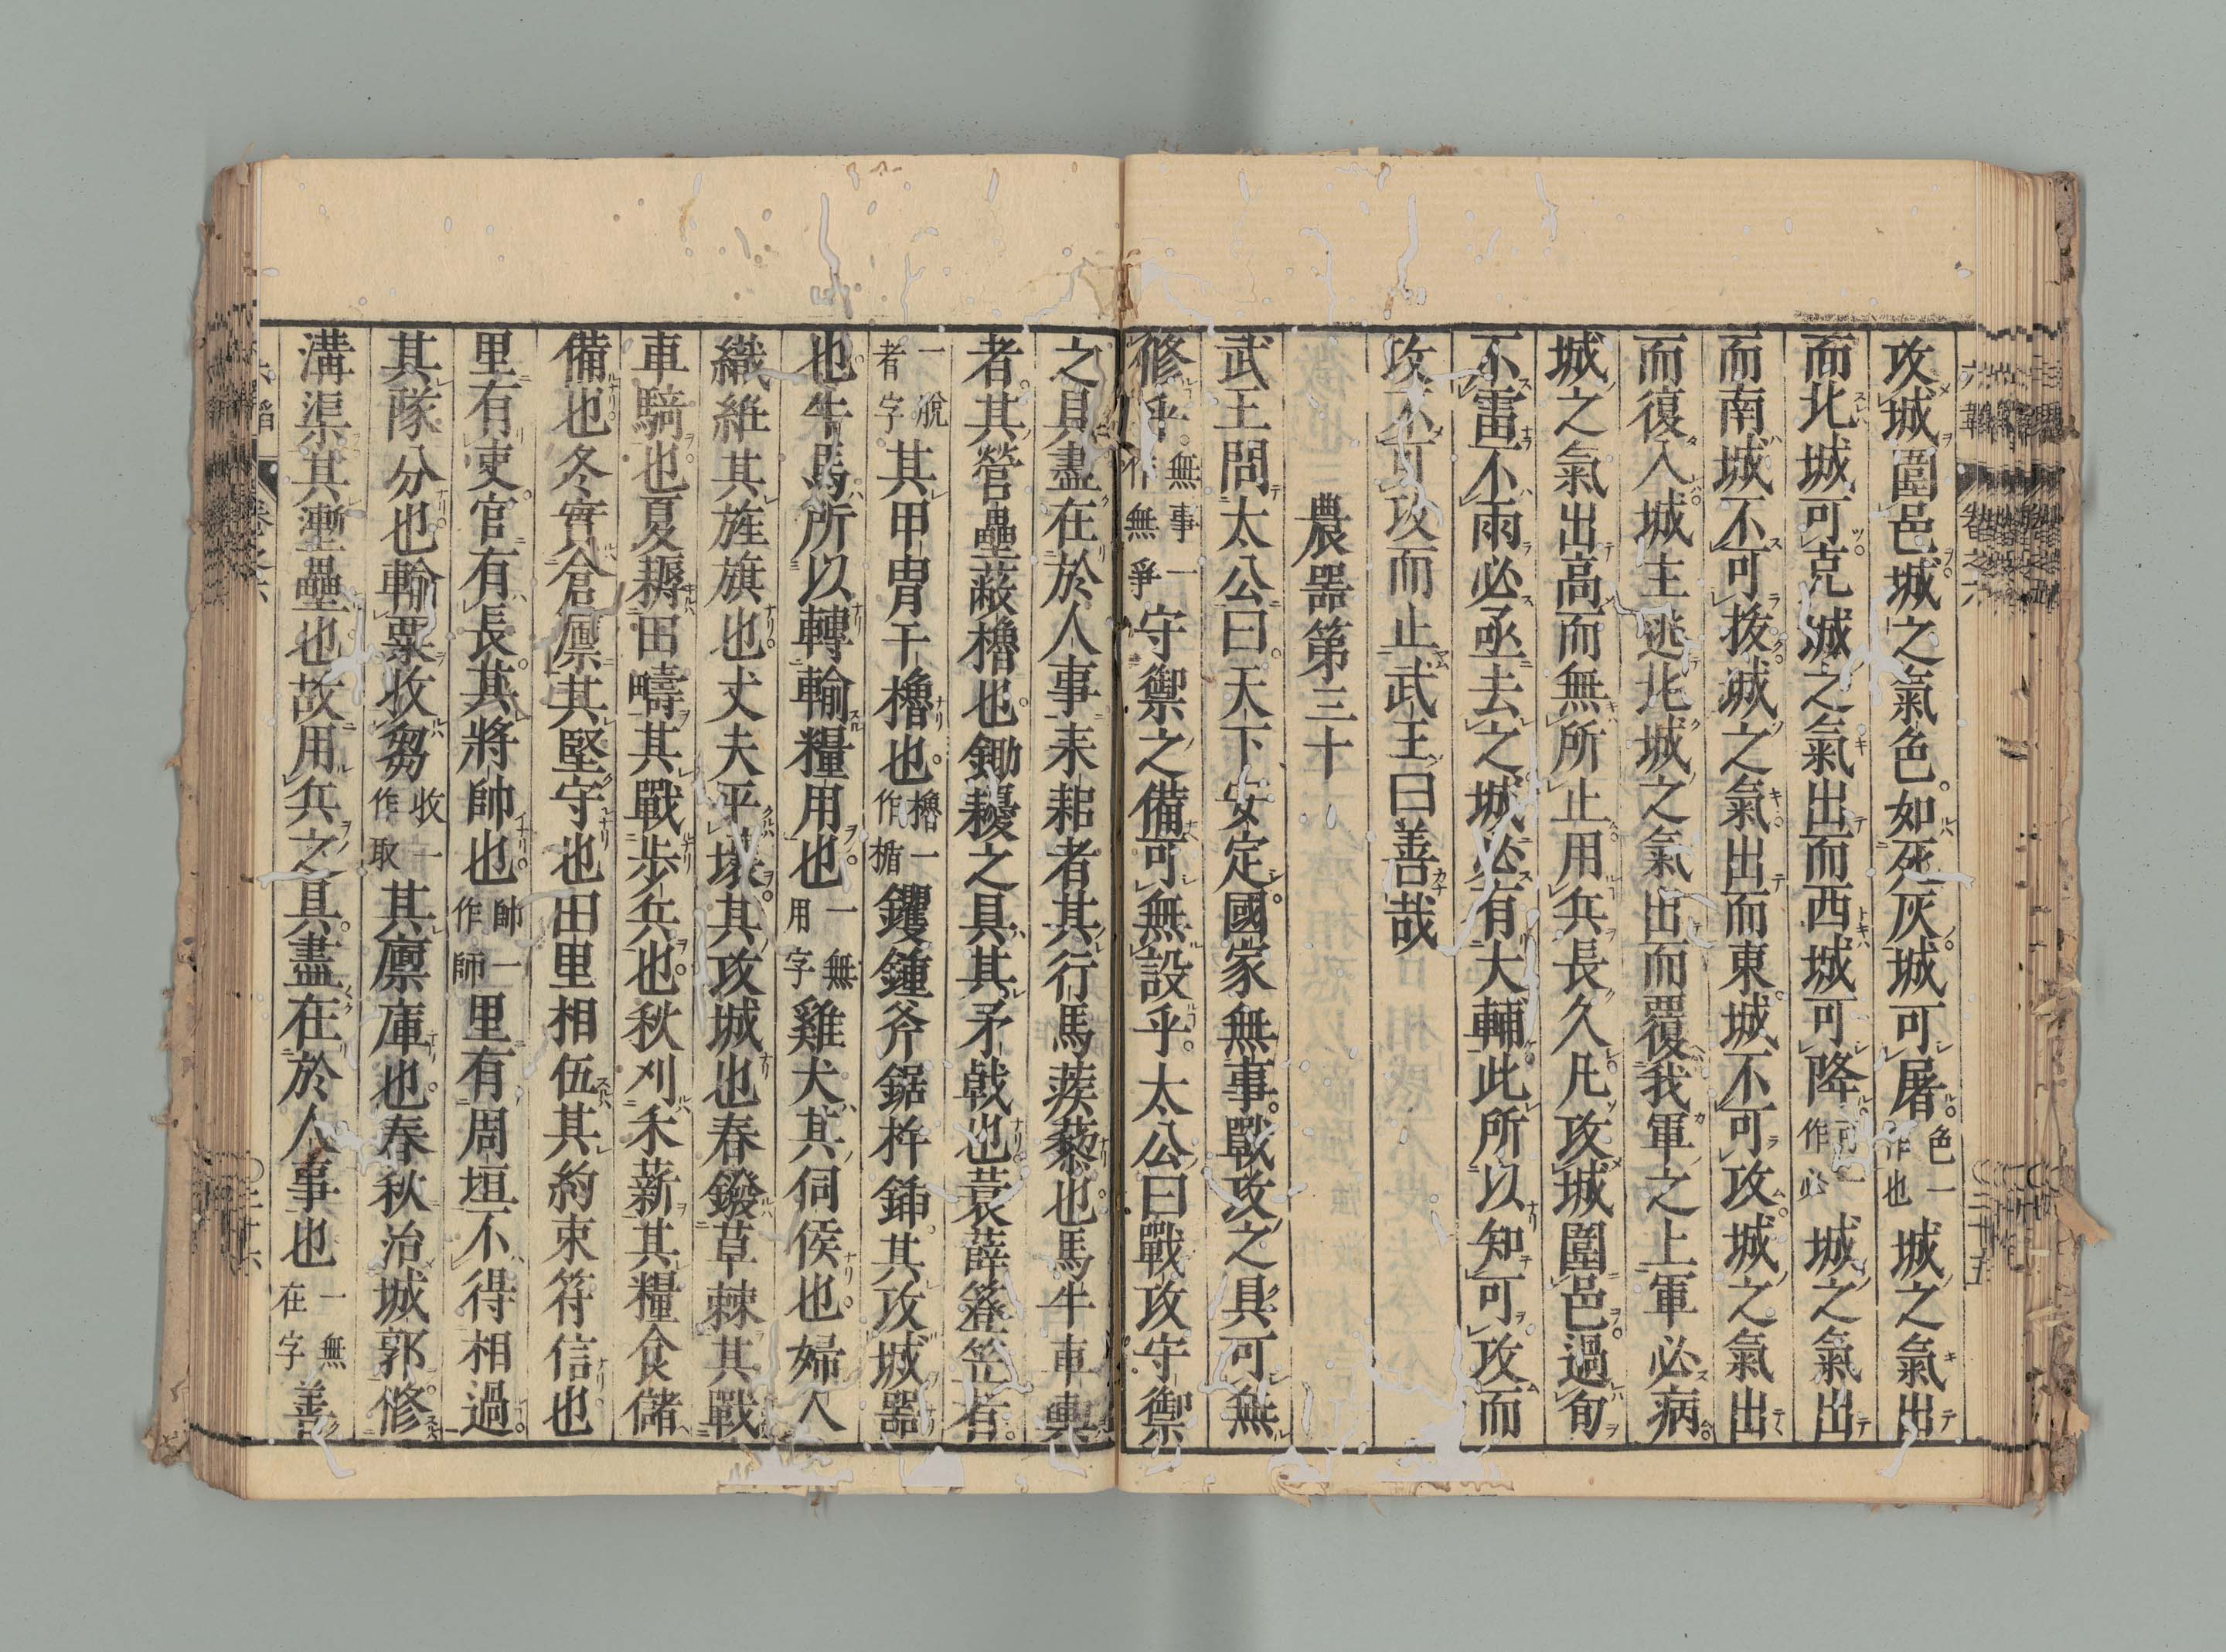 攻城圍邑城之氣色如死灰城可屠色一作也城之氣出
而北城可克城之氣出而西城可降可一作必城之氣出
而南城不可拔城之氣出而東城不可攻城之氣出
而復入城主逃北城之氣出而覆我軍之上軍必病
城之氣出高而無所止用兵長久凡攻城圍邑過旬
不雷不雨必亟去之城必有大輔此所以知可攻而
攻不可攻而止武王曰善哉
農器第三十
武王問太公曰天下安定國家無事戰攻之具可無
修乎無事一作無爭守禦之備可無設乎太公曰戰攻守禦
之具盡在於人事耒耜者其行馬蒺藜也馬牛車輿
者其營壘蔽櫓也鋤耰之具其矛戟也蓑薛簦笠者
一脫者字其甲冑干櫓也櫓一作楯钁鍤斧鋸杵鍤其攻城器
也牛馬所以轉輸糧用也一無用字雞犬其伺候也婦人
織紝其旌旗也丈夫平壤其攻城也春鏺草棘其戰
車騎也夏耨田疇其戰步兵也秋刈禾薪其糧食儲
備也冬實倉廩其堅守也田里相伍其約束符信也
里有吏官有長其將帥也帥一作師里有周垣不得相過
其隊分也輸粟收芻收一作取其廩庫也春秋治城郭修
溝渠其塹壘也故用兵之具盡在於人事也一無在字善